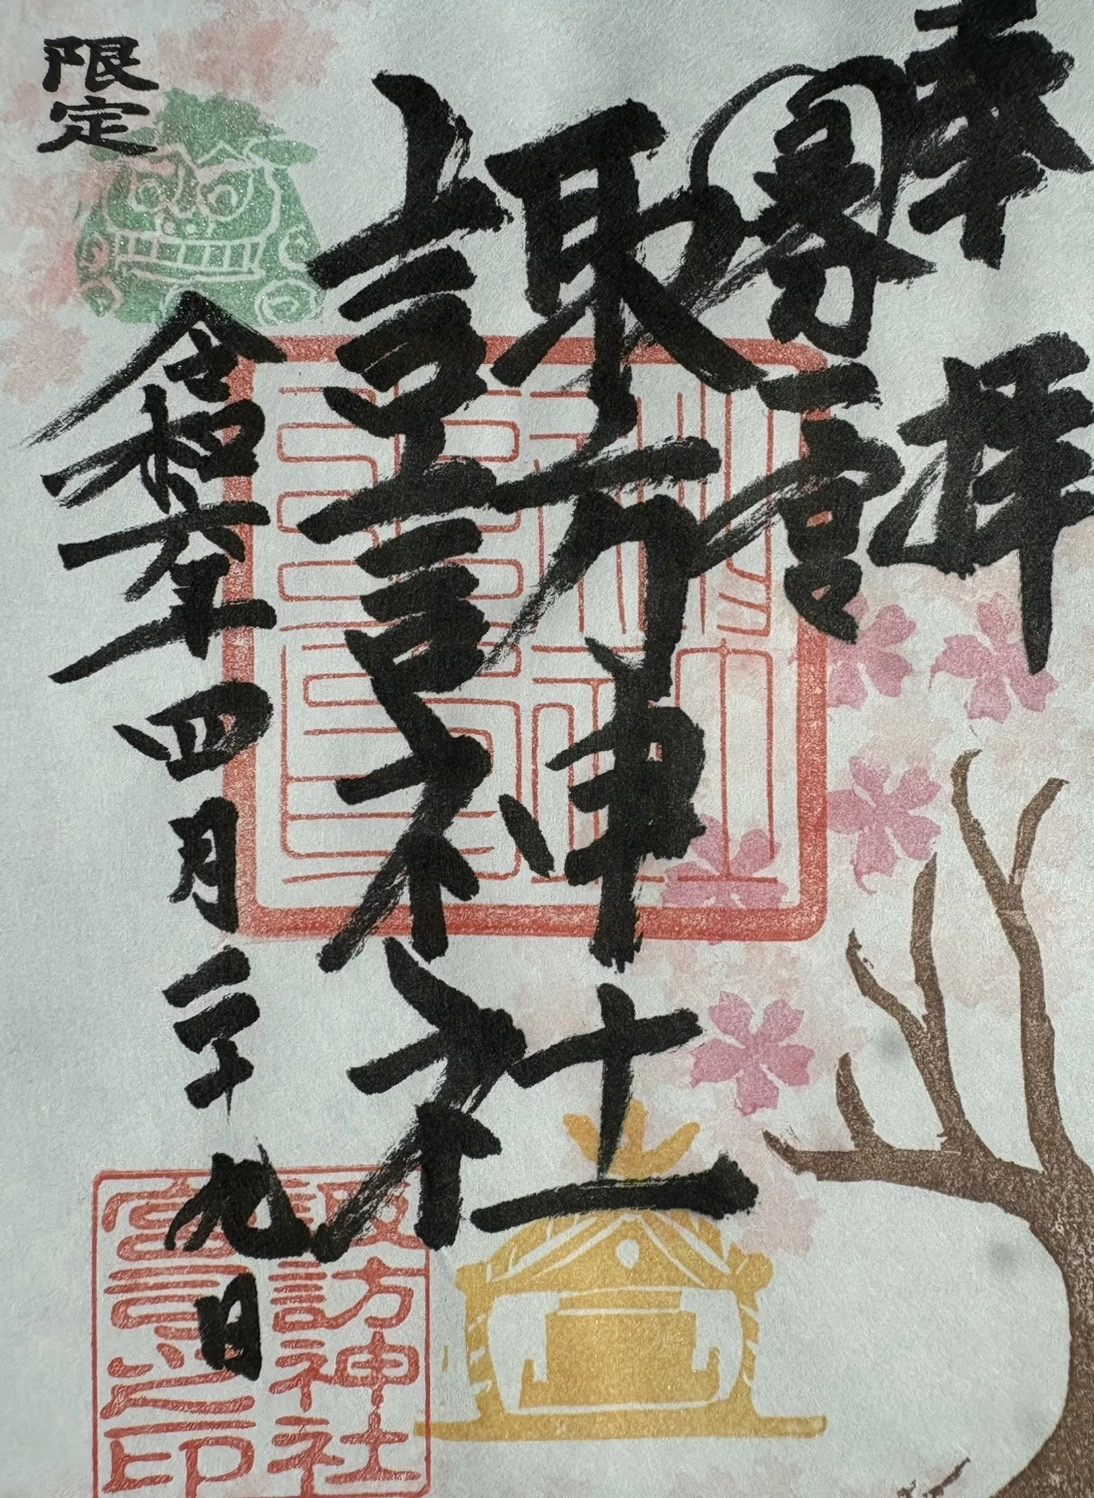 奉拝
一宮
諏訪神社
令和六年四月二十九日
限定
諏訪神社
宮司之印